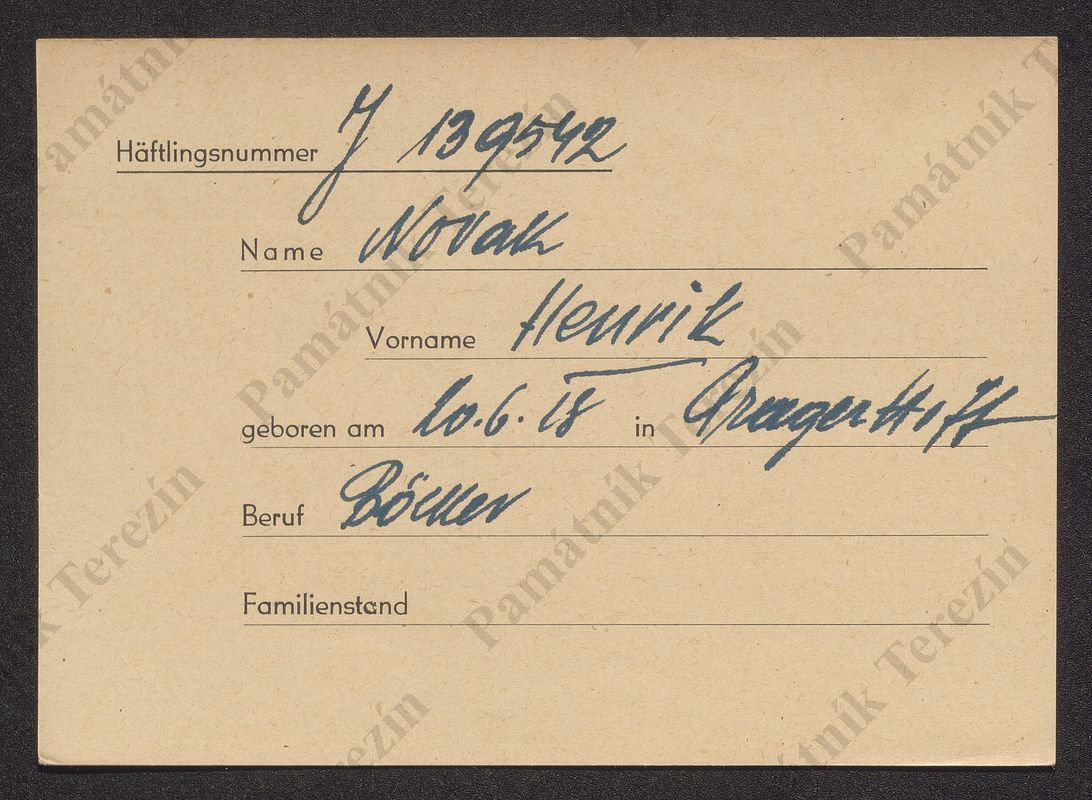 Häftlingsnummer J 139542
Name Novak
Vorname Henrik
geboren am 20.6.18 in Pragerhoff
Beruf Bäcker
Familienstand
Památník Terezín
Památník Terezín
Památník Terezín
Památník Terezín
Památník Terezín